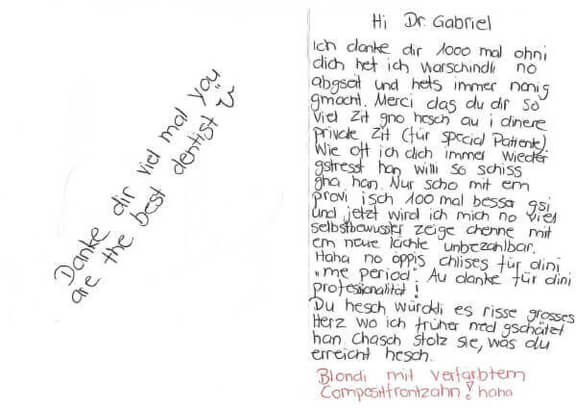 Danke dir viel mal you
are the best dentist
Hi Dr. Gabriel
Ich danke dir 1000 mal ohni
dich het ich warschindli no
abgseit und hets immer nonig
gmacht. Merci das du dir so
viel Zit gno hesch au i dinere
private Zit (für special Patiente)
Wie oft ich dich immer wieder
gstresst han willi so schiss
gha han. Nur scho mit em
provi isch 100 mal besser gsi
und jetzt wird ich mich no viel
selbstbewusster zeige chenne mit
em neue lächle unbezahlbar.
Haha no öppis chlises für dini
"me period". Au danke für dini
professionalität!
Du hesch würckli es risse grosses
Herz wo ich früher ned gschätzt
han. Chasch stolz sie, was du
erreicht hesch.
Blondi mit verfarbtem
Compositfrontzahn! haha